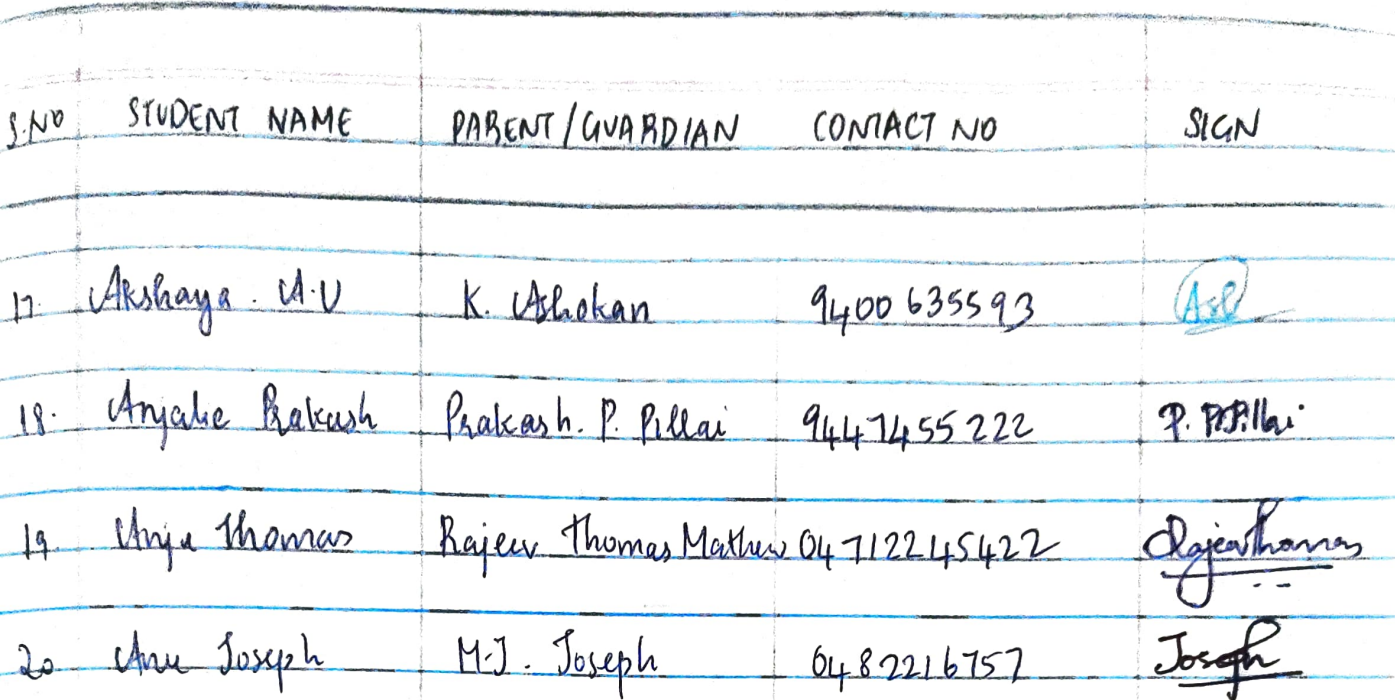 S.NO STUDENT NAME PARENT/GUARDIAN CONTACT NO SIGN
17. Akshaya. A.V K. Ashokan 9400635593
18. Anjalie Prakash Prakash. P. Pillai 9447455222 P. P.Pillai
19. Anju Thomas Rajeev Thomas Mathew 04712245422 RajeevThomas
20 Anu Joseph M.J. Joseph 0482216757 Joseph